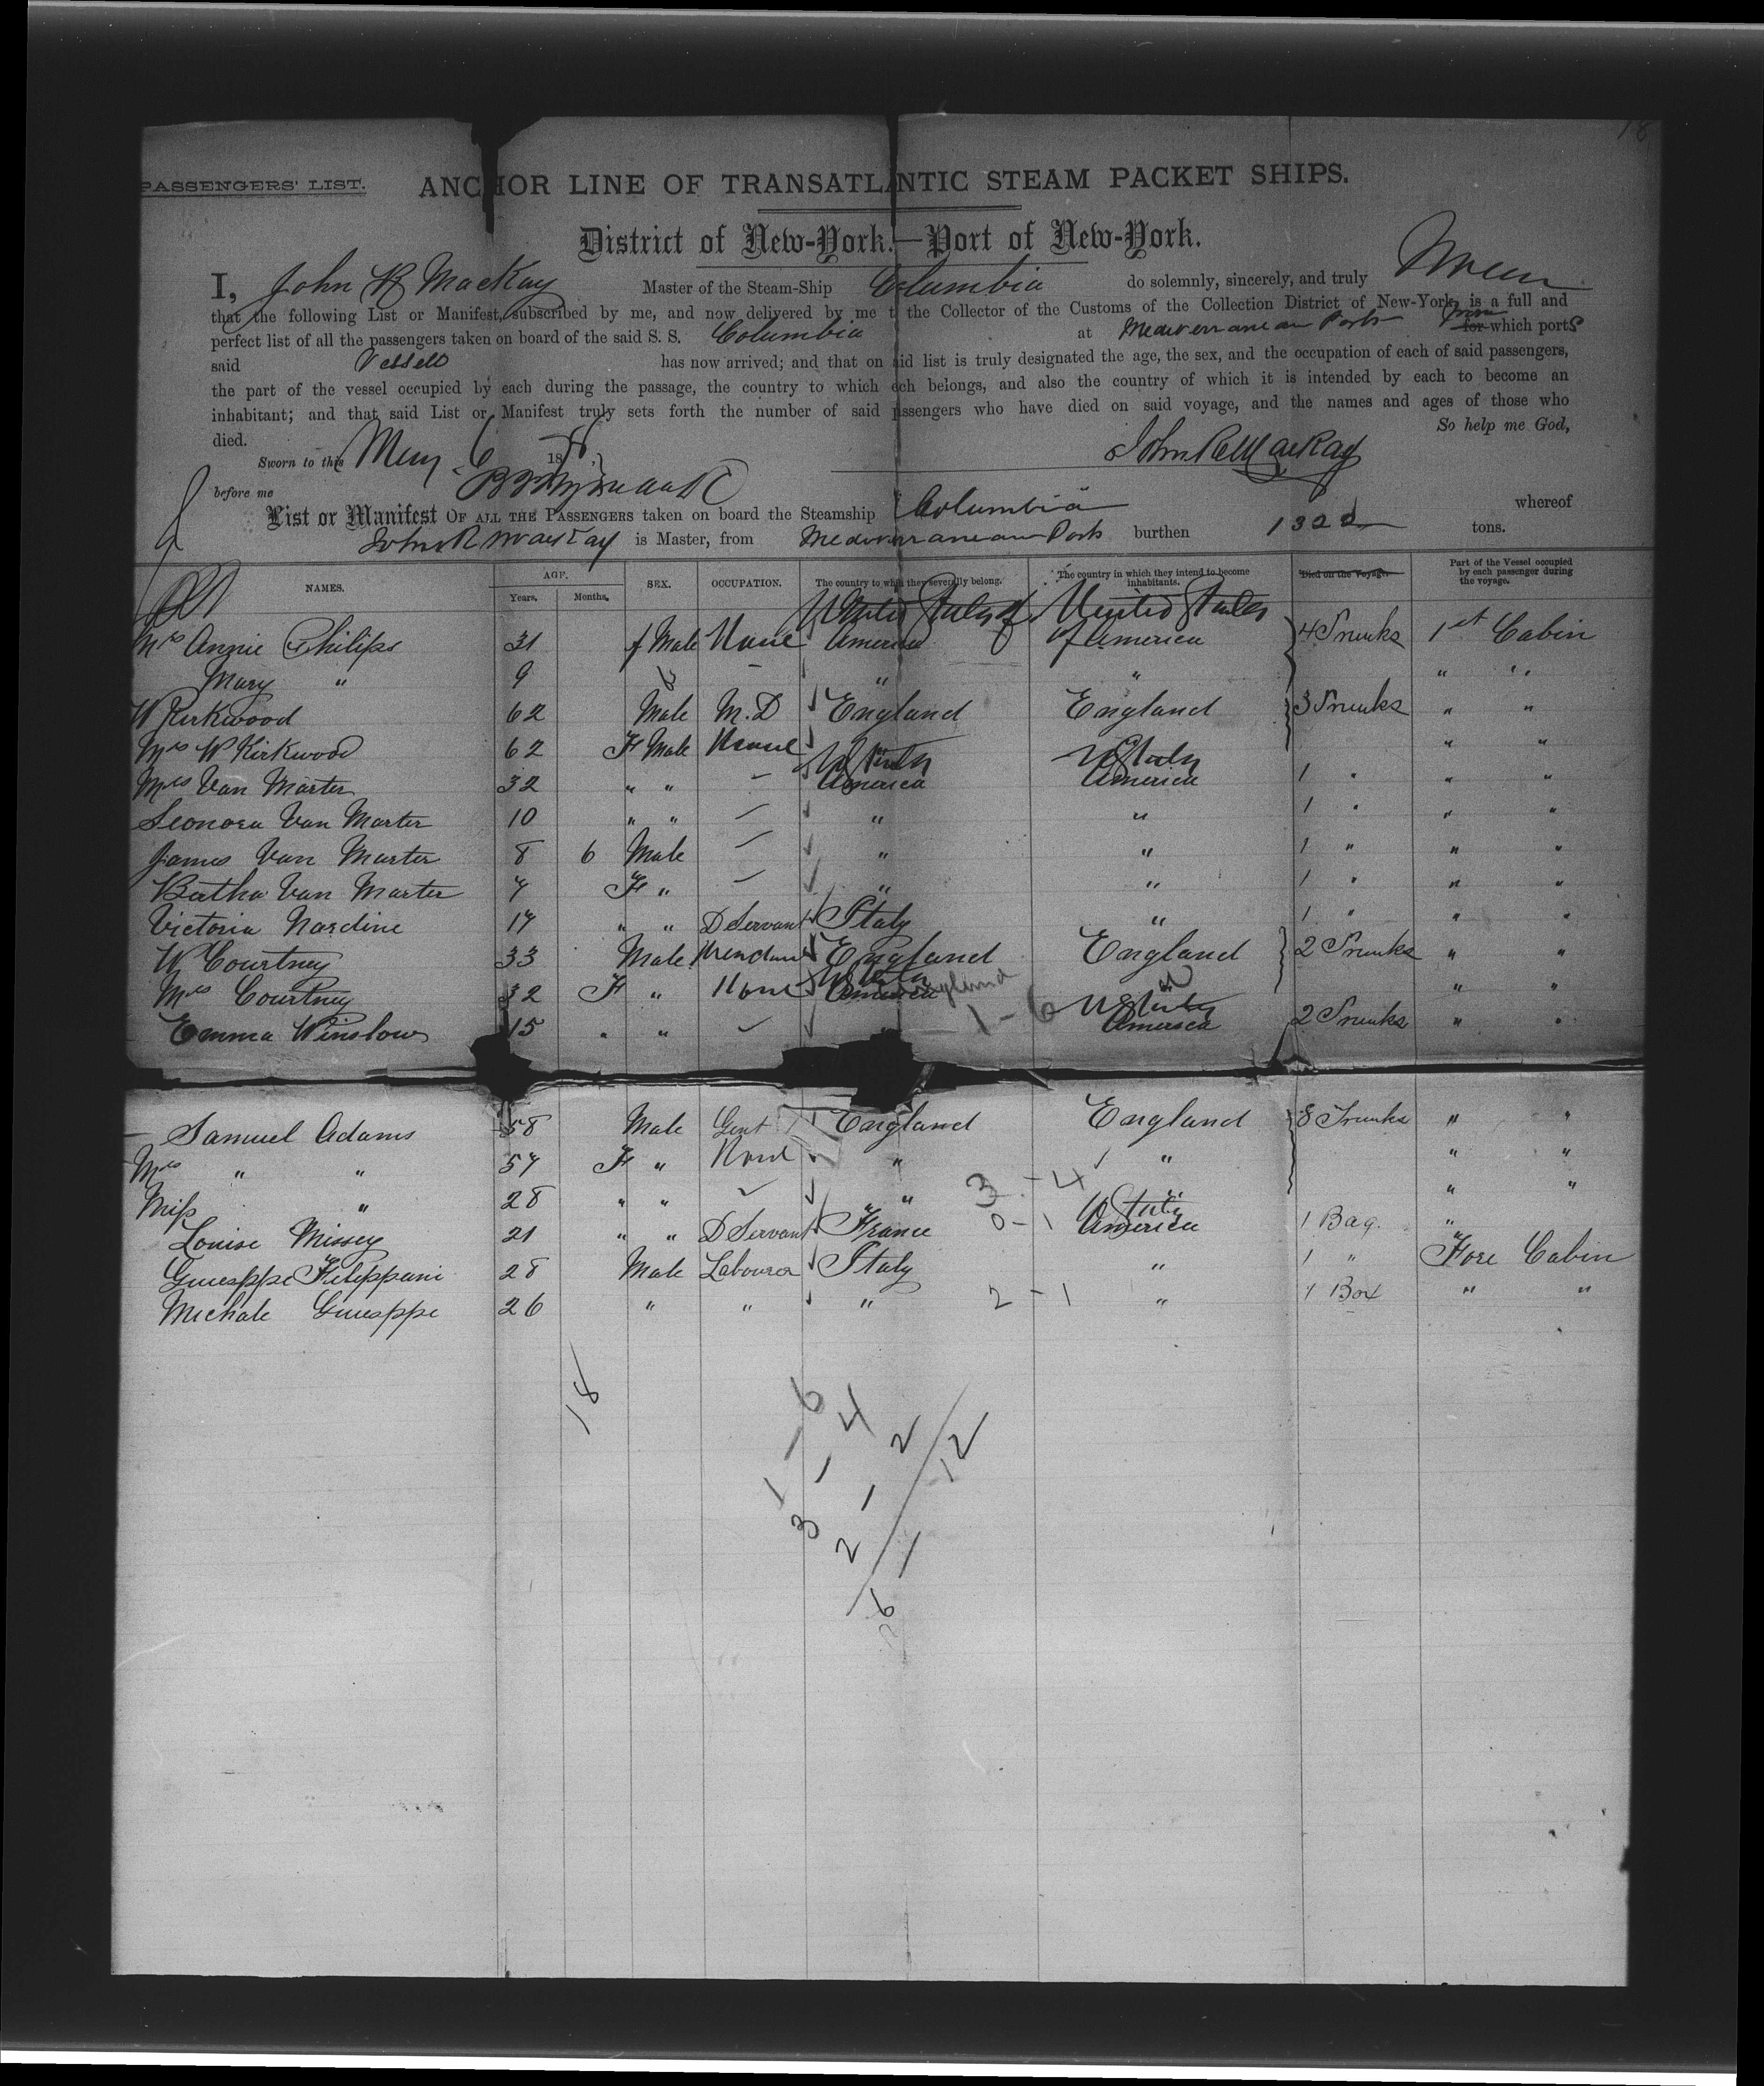 18
PASSENGERS' LIST. ANCHOR LINE OF TRANSATLANTIC STEAM PACKET SHIPS.
District of New-York.—Port of New-York.
I, John R Mackay Master of the Steam-Ship Columbia do solemnly, sincerely, and truly Swear
that the following List or Manifest, subscribed by me, and now delivered by me t the Collector of the Customs of the Collection District of New-York, is a full and
perfect list of all the passengers taken on board of the said S. S. Columbia at Mediterranean Ports from for which ports
said Vessell has now arrived; and that on aid list is truly designated the age, the sex, and the occupation of each of said passengers,
the part of the vessel occupied by each during the passage, the country to which ech belongs, and also the country of which it is intended by each to become an
inhabitant; and that said List or Manifest truly sets forth the number of said pssengers who have died on said voyage, and the names and ages of those who
died. So help me God,
Sworn to this May 6 1878, John R Mackay
before me
List or Manifest OF ALL THE PASSENGERS taken on board the Steamship Columbia whereof
John R Mackay is Master, from Mediterranean Ports burthen 1322 tons.
NAMES. AGE. Years. Months. SEX. OCCUPATION. The country to which they severally belong. The country in which they intend to become inhabitants. Died on the Voyage. Part of the Vessel occupied by each passenger during the voyage.
United States of United States
Mrs Annie Philips 31 f Male None America of America 4 Trunks 1st Cabin
Mary " 9 " " " "
W Kirkwood 62 Male M.D England England 3 Trunks " "
Mrs W Kirkwood 62 F Male None " "
U States U States
Mrs Van Marter 32 " " America America 1 " " "
Leonora Van Marter 10 " " " " 1 " " "
James Van Marter 8 6 Male " " 1 " " "
Bertha Van Marter 7 F " " " 1 " " "
Victoria Nardine 17 " " D Servant Italy " 1 " " "
W Courtney 33 Male Merchant England England 2 Trunks " "
Mrs Courtney 32 F " None U States America England " "
Emma Winslow 15 " " " 1-6 U States America 2 Trunks " "
Samuel Adams 58 Male Gent England England 8 Trunks " "
Mrs " " 57 F " None " " " "
Miss " 28 " " " 3-4 " " "
Louise Missey 21 " " D Servant France 0-1 U States America 1 Bag. "
Guiesppe Filippani 28 Male Labourer Italy " 1 " Fore Cabin
Michale Guiesppe 26 " " " 2-1 " 1 Box " "
18
1-6
3-4
2-2
6-12